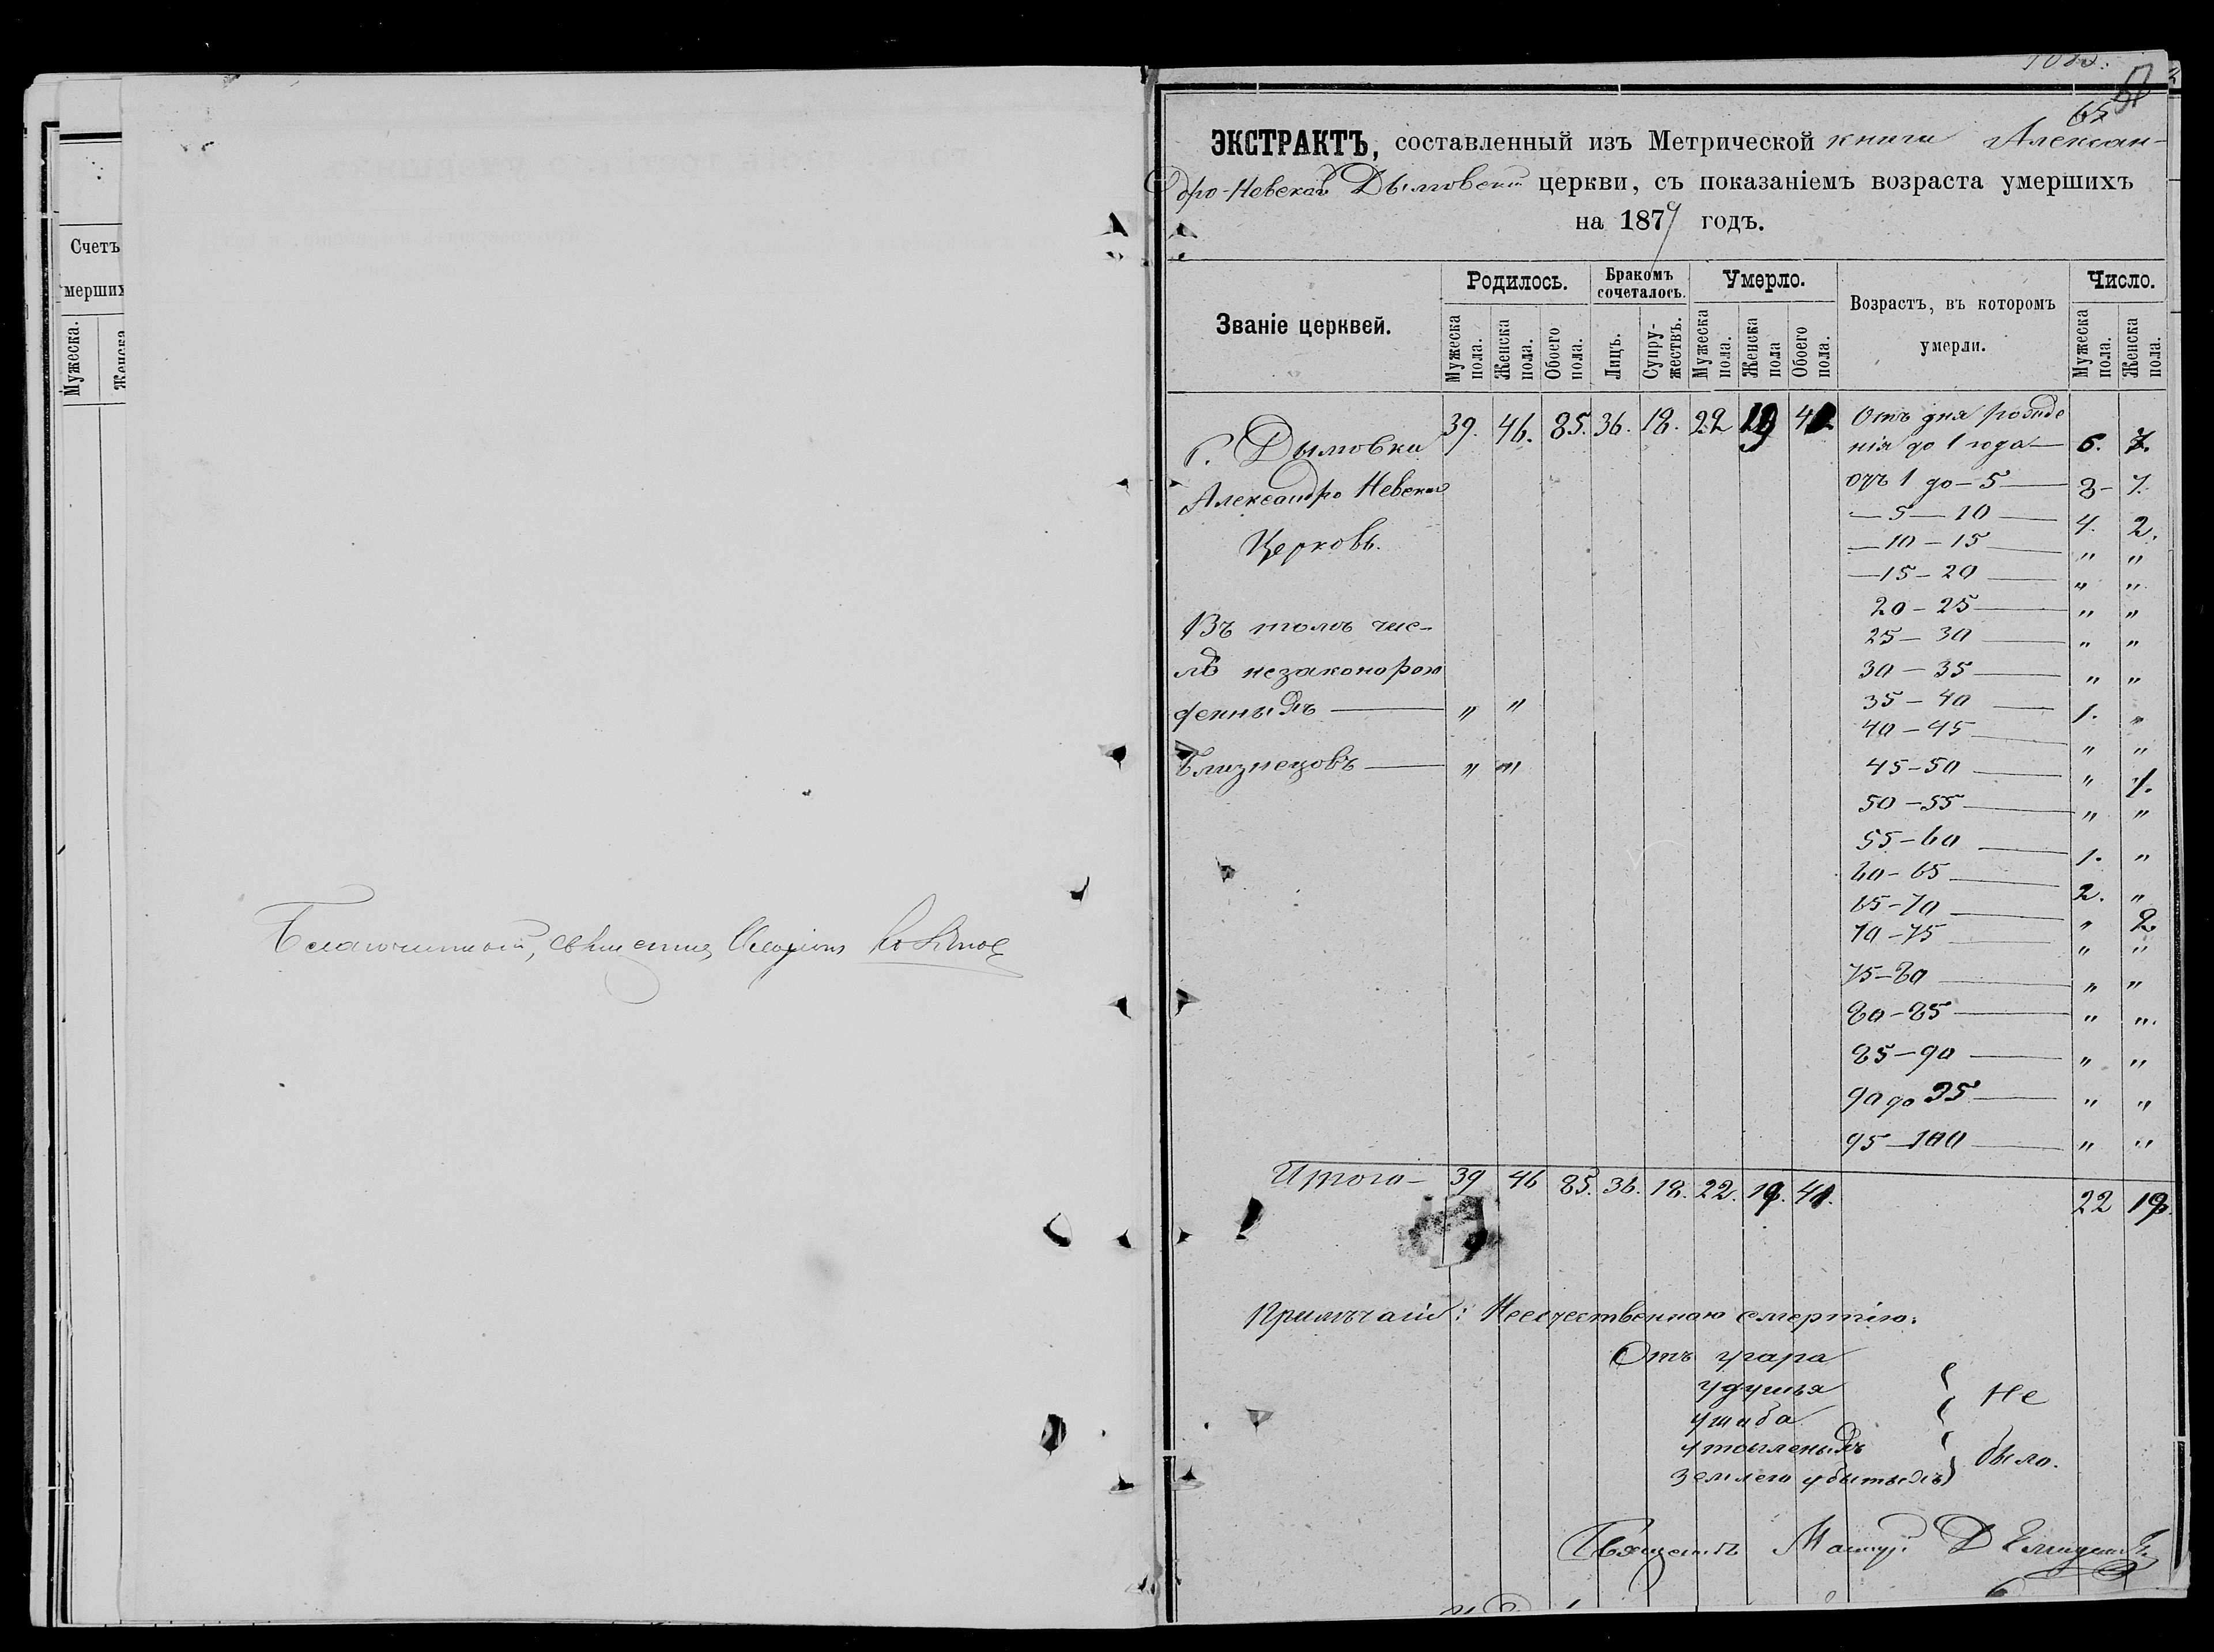 Счетъ
мерших
Мужеска.
Женска
Благочинный, священникъ
65
ЭКСТРАКТЪ, составленный изъ Метрической книги Алексан-
дро-Невской Дымовской церкви, съ показаніемъ возраста умершихъ
на 1879 годъ.
Званіе церквей. Родилось. Бракомъ сочеталось. Умерло. Возрастъ, въ которомъ умерли. Число.
Мужеска пола. Женска пола. Обоего пола. Лицъ. Супружествъ. Мужеска пола. Женска пола Обоего пола. Мужеска пола. Женска пола.
39. 46. 85. 36. 18. 22 19 41 Отъ дня рожде
С. Дымовка нія до 1 года — 6. 7.
Александро Невская отъ 1 до — 5 — 8 — 7.
— 5 — 10 — 4. 2.
Церковь. — 10 — 15 — " "
— 15 — 20 — " "
20 — 25 — " "
Въ томъ чис- 25 — 30 — " "
лѣ незаконорож 30 — 35 — " "
денныхъ — " " 35 — 40 — 1. "
40 — 45 — " "
Близнецовъ — " " 45 — 50 — " 1.
50 — 55 — " "
55 — 60 — 1. "
60 — 65 — 2. "
65 — 70 — " 2
70 — 75 — " "
75 — 80 — " "
80 — 85 — " "
85 — 90 — " "
90 до 95 — " "
95 — 100 — " "
Итого — 39 46 85. 36. 18. 22. 19. 41. 22 19.
Примѣчаніе: Неестественною смертію.
Отъ угара
удушья Не
ушиба
утопленыхъ было.
землею убитыхъ
Священникъ